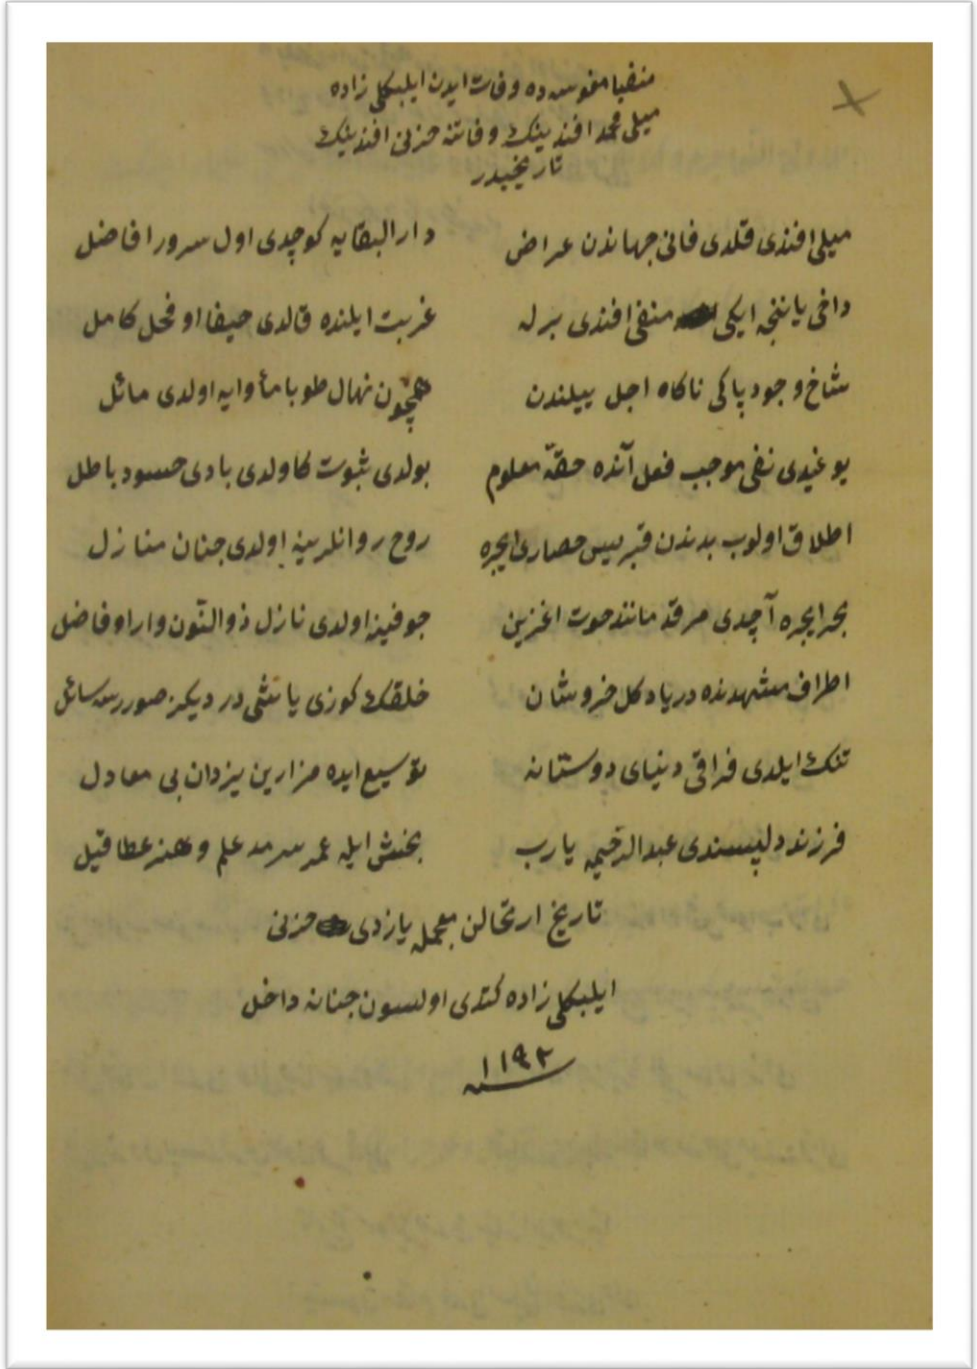 منفيا مغوسه ده وفات ايدن ايلبكلى زاده
ميلى محمد افندينك وفاتنه حزنى افندينك
تاريخيدر
ميلى افندى قلدى فانى جهاندن عراض دار البقايه كوچدى اول سرور افاضل
داخى ياننجه ايكى منفى افندى برله غربت ايلنده قالدى حيفا او فحل كامل
شاخ وجود پاكى ناكاه اجل ييلندن همچون نهال طوبا مأوايه اولدى مائل
يوغيدى نفى موجب فعل آنده حقّه معلوم بولدى ثبوت كاولدى بادى حسود باطل
اطلاق اولوب بدندن قبريس حصارى ايچره روح روانلرينه اولدى جنان منازل
بحر ايچره آچدى مرقد مانند حوت اغزين جوفينه اولدى نازل ذو النّون وار او فاضل
اطراف مشهدنده دريا دكل خروشان خلقك كوزى ياشى در ديكز صوررسه سائل
تنك ايلدى فراقى دنياى دوستانه توسيع ايده مزارين يزدان بى معادل
فرزند دلپسندى عبد الرّحيمه يارب بخش ايله عمر سرمد علم و هنر عطا قيل
تاريخ ارتحالن معجمله يازدى حزنى
ايلبكلى زاده كتدى اولسون جنانه داخل
سنه ١١٩٢